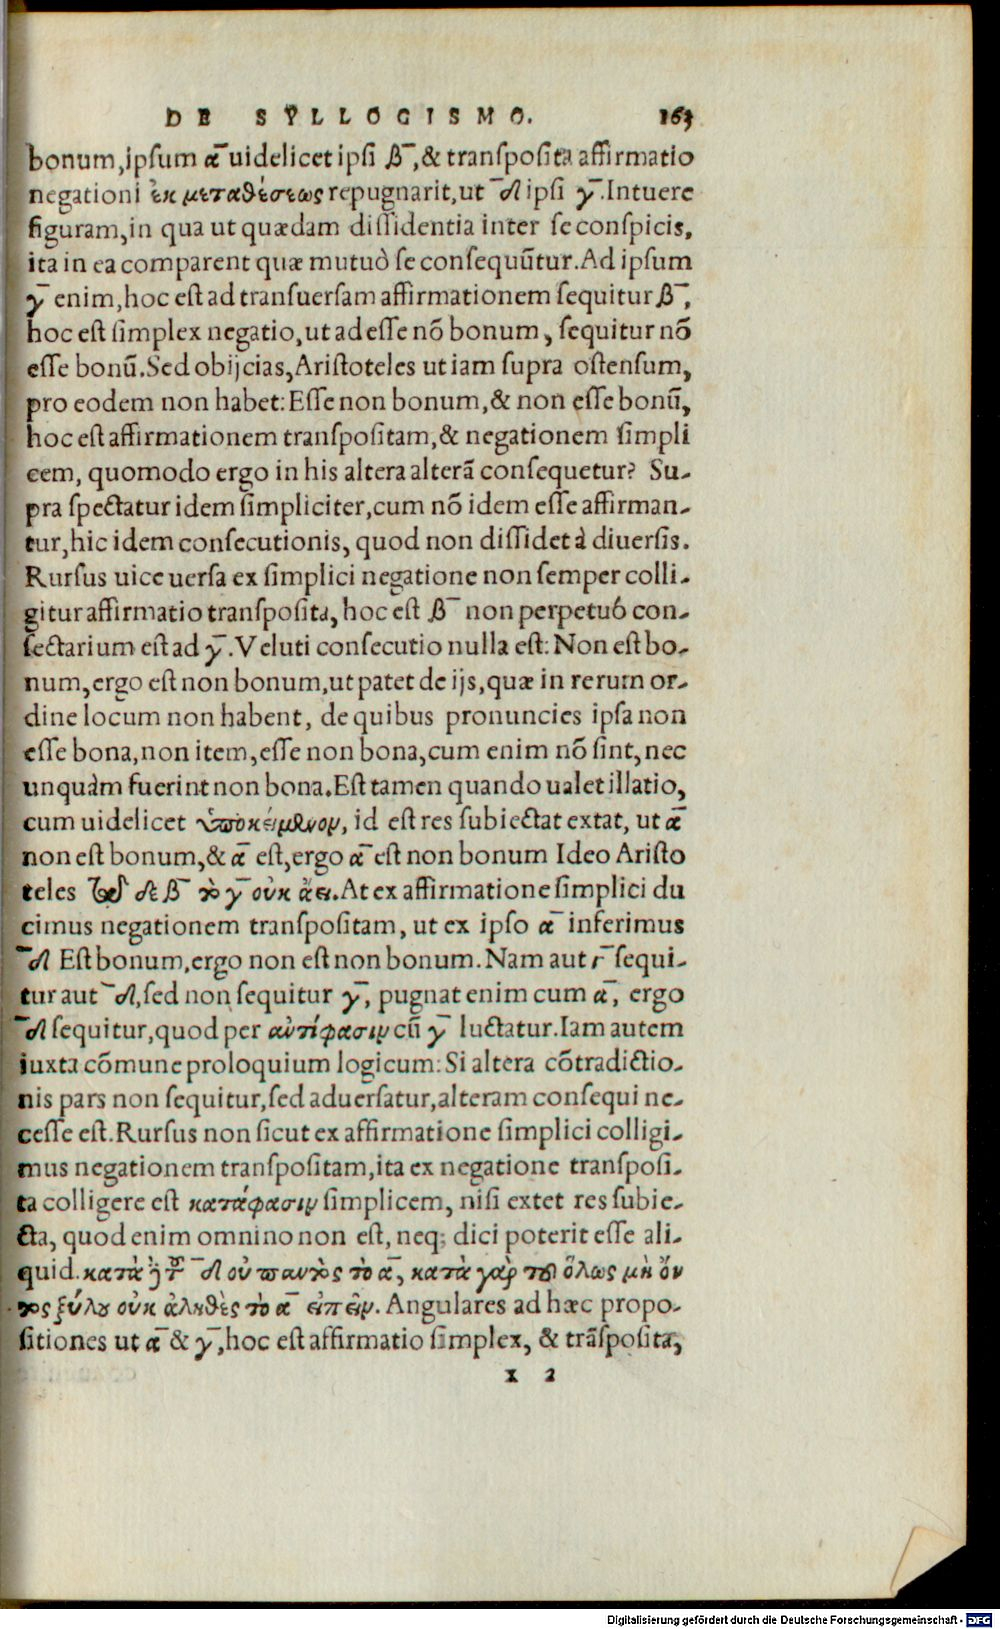 DE SYLLOGISMO. 163
bonum,ipsum α̅ uidelicet ipsi β̅,& transposita affirmatio
negationi ἐκ μεταθέσεως repugnarit,ut δ̅ ipsi γ̅.Intuere
figuram,in qua ut quædam dissidentia inter se conspicis,
ita in ea comparent quæ mutuò se consequūtur.Ad ipsum
γ̅ enim,hoc est ad transuersam affirmationem sequitur β̅,
hoc est simplex negatio,ut ad esse nō bonum, sequitur nō
esse bonū.Sed obijcias,Aristoteles ut iam supra ostensum,
pro eodem non habet:Esse non bonum,& non esse bonū,
hoc est affirmationem transpositam,& negationem simpli
cem, quomodo ergo in his altera alterā consequetur? Su-
pra spectatur idem simpliciter,cum nō idem esse affirman-
tur,hic idem consecutionis, quod non dissidet à diuersis.
Rursus uice uersa ex simplici negatione non semper colli-
gitur affirmatio transposita, hoc est β̅ non perpetuò con-
sectarium est ad γ̅.Veluti consecutio nulla est: Non est bo-
num,ergo est non bonum,ut patet de ijs,quæ in rerum or-
dine locum non habent, de quibus pronuncies ipsa non
esse bona,non item,esse non bona,cum enim nō sint,nec
unquàm fuerint non bona.Est tamen quando ualet illatio,
cum uidelicet ὑποκείμενον, id est res subiectat extat, ut α̅
non est bonum,& α̅ est,ergo α̅ est non bonum Ideo Aristo
teles τῷ δὲ β̅ τὸ γ̅ οὐκ ἀεί.At ex affirmatione simplici du
cimus negationem transpositam, ut ex ipso α̅ inferimus
δ̅ Est bonum,ergo non est non bonum.Nam aut γ̅ sequi-
tur aut δ̅,sed non sequitur γ̅, pugnat enim cum α̅, ergo
δ̅ sequitur,quod per ἀντίφασιν cū γ̅ luctatur.Iam autem
iuxta cōmune proloquium logicum: Si altera cōtradictio-
nis pars non sequitur,sed aduersatur,alteram consequi ne-
cesse est.Rursus non sicut ex affirmatione simplici colligi-
mus negationem transpositam,ita ex negatione transposi-
ta colligere est κατάφασιν simplicem, nisi extet res subie-
cta, quod enim omnino non est, neq; dici poterit esse ali-
quid. κατὰ δ̅ οὐ παντὸς τὸ α̅, κατὰ γὰρ τοῦ ὅλως μὴ ὄν
τος ξύλου οὐκ ἀληθὲς τὸ α̅ εἰπεῖν. Angulares ad hæc propo-
sitiones ut α̅ & γ̅,hoc est affirmatio simplex, & trāsposita,
x 2
Digitalisierung gefördert durch die Deutsche Forschungsgemeinschaft - DFG